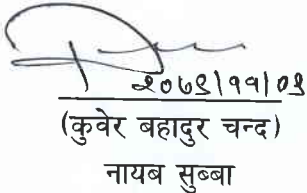 २०७९|११|०९
(कुवेर बहादुर चन्द)
नायब सुब्बा